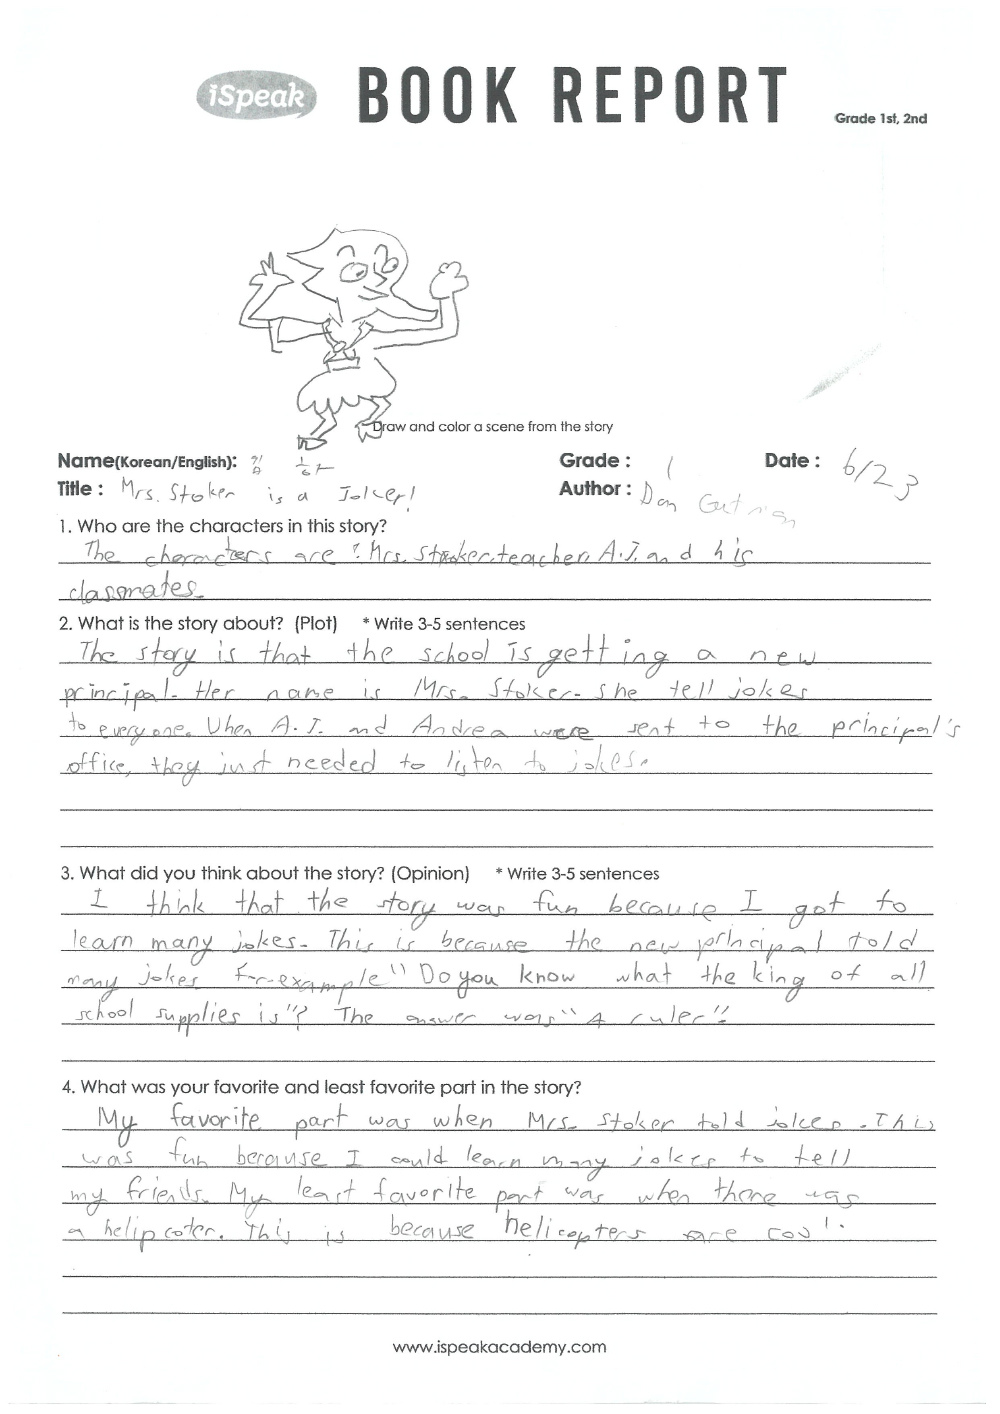 iSpeak BOOK REPORT
Grade 1st, 2nd
Draw and color a scene from the story
Name(Korean/English): Grade : 1 Date : 6/23
Title : Mrs. Stoker is a Joker! Author : Dan Gutman
1. Who are the characters in this story?
The characters are : Mrs. Stoker, teacher, A.J. and his
classmates.
2. What is the story about? (Plot) * Write 3-5 sentences
The story is that the school is getting a new
principal. Her name is Mrs. Stoker. She tell jokes
to everyone. When A.J. and Andrea were sent to the principal's
office, they just needed to listen to jokes.
3. What did you think about the story? (Opinion) * Write 3-5 sentences
I think that the story was fun because I got to
learn many jokes. This is because the new principal told
many jokes For example " Do you know what the king of all
school supplies is"? The answer was "A ruler"!
4. What was your favorite and least favorite part in the story?
My favorite part was when Mrs. Stoker told jokes. This
was fun because I could learn many jokes to tell
my friends. My least favorite part was when there was
a helipcoter. This is because helicopters are cool.
www.ispeakacademy.com